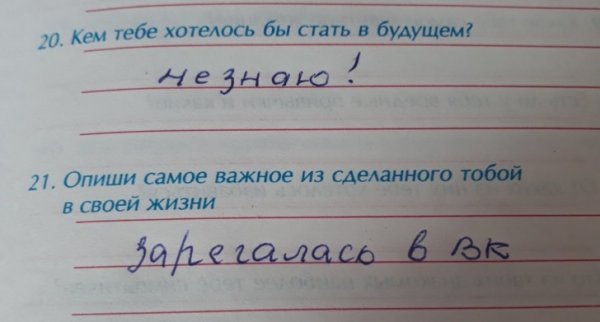 20. Кем тебе хотелось бы стать в будущем?
не знаю!
21. Опиши самое важное из сделанного тобой
в своей жизни
зарегалась в вк